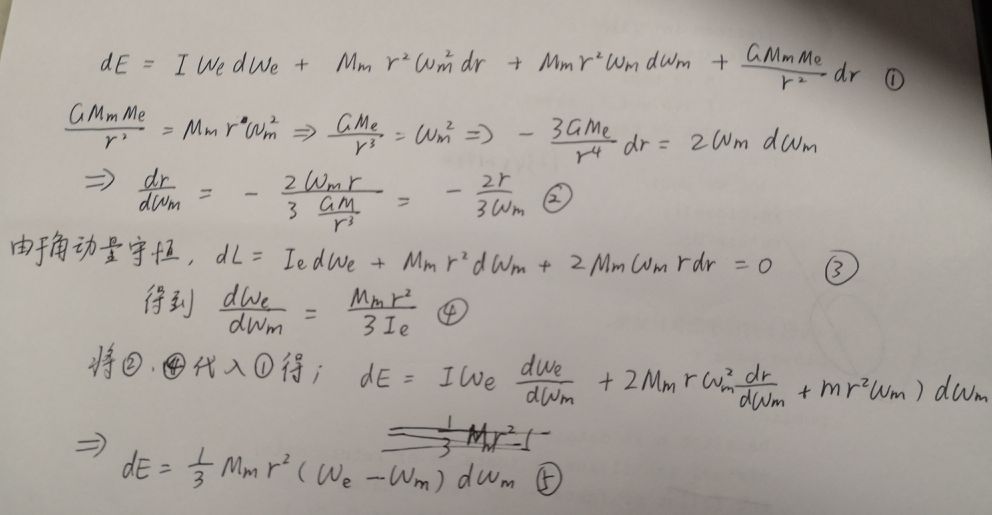 dE = I ωe dωe + Mm r² ωm² dr + Mm r² ωm dωm + GMmMe/r² dr ①
GMmMe/r² = Mm r ωm² ⇒ GMe/r³ = ωm² ⇒ - 3GMe/r⁴ dr = 2ωm dωm
⇒ dr/dωm = - 2ωm r/(3 GM/r³) = - 2r/3ωm ②
由于角动量守恒, dL = Ie dωe + Mm r² dωm + 2Mm ωm r dr = 0 ③
得到 dωe/dωm = Mm r²/3Ie ④
将②、④代入①得; dE = Iωe dωe/dωm + 2Mm r ωm² dr/dωm + mr²ωm) dωm
⇒ dE = 1/3 Mm r² (ωe - ωm) dωm ⑤